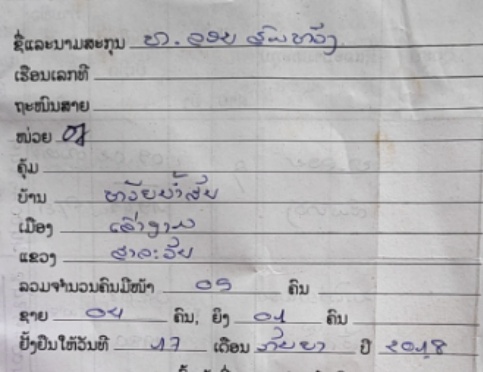 ຊື່ແລະນາມສະກຸນ ທ. ລອຍ
ເຮືອນເລກທີ
ຖະໜົນສາຍ
ໜ່ວຍ 01
ຄຸ້ມ
ບ້ານ ຫ້ວຍນ້ຳໃສ
ເມືອງ ເລົ່າງາມ
ແຂວງ ສາລະວັນ
ລວມຈຳນວນຄົນມີໜ້າ 05 ຄົນ
ຊາຍ 04 ຄົນ, ຍິງ 01 ຄົນ
ຢັ້ງຢືນໃຫ້ວັນທີ 17 ເດືອນ ກັນຍາ ປີ 2018